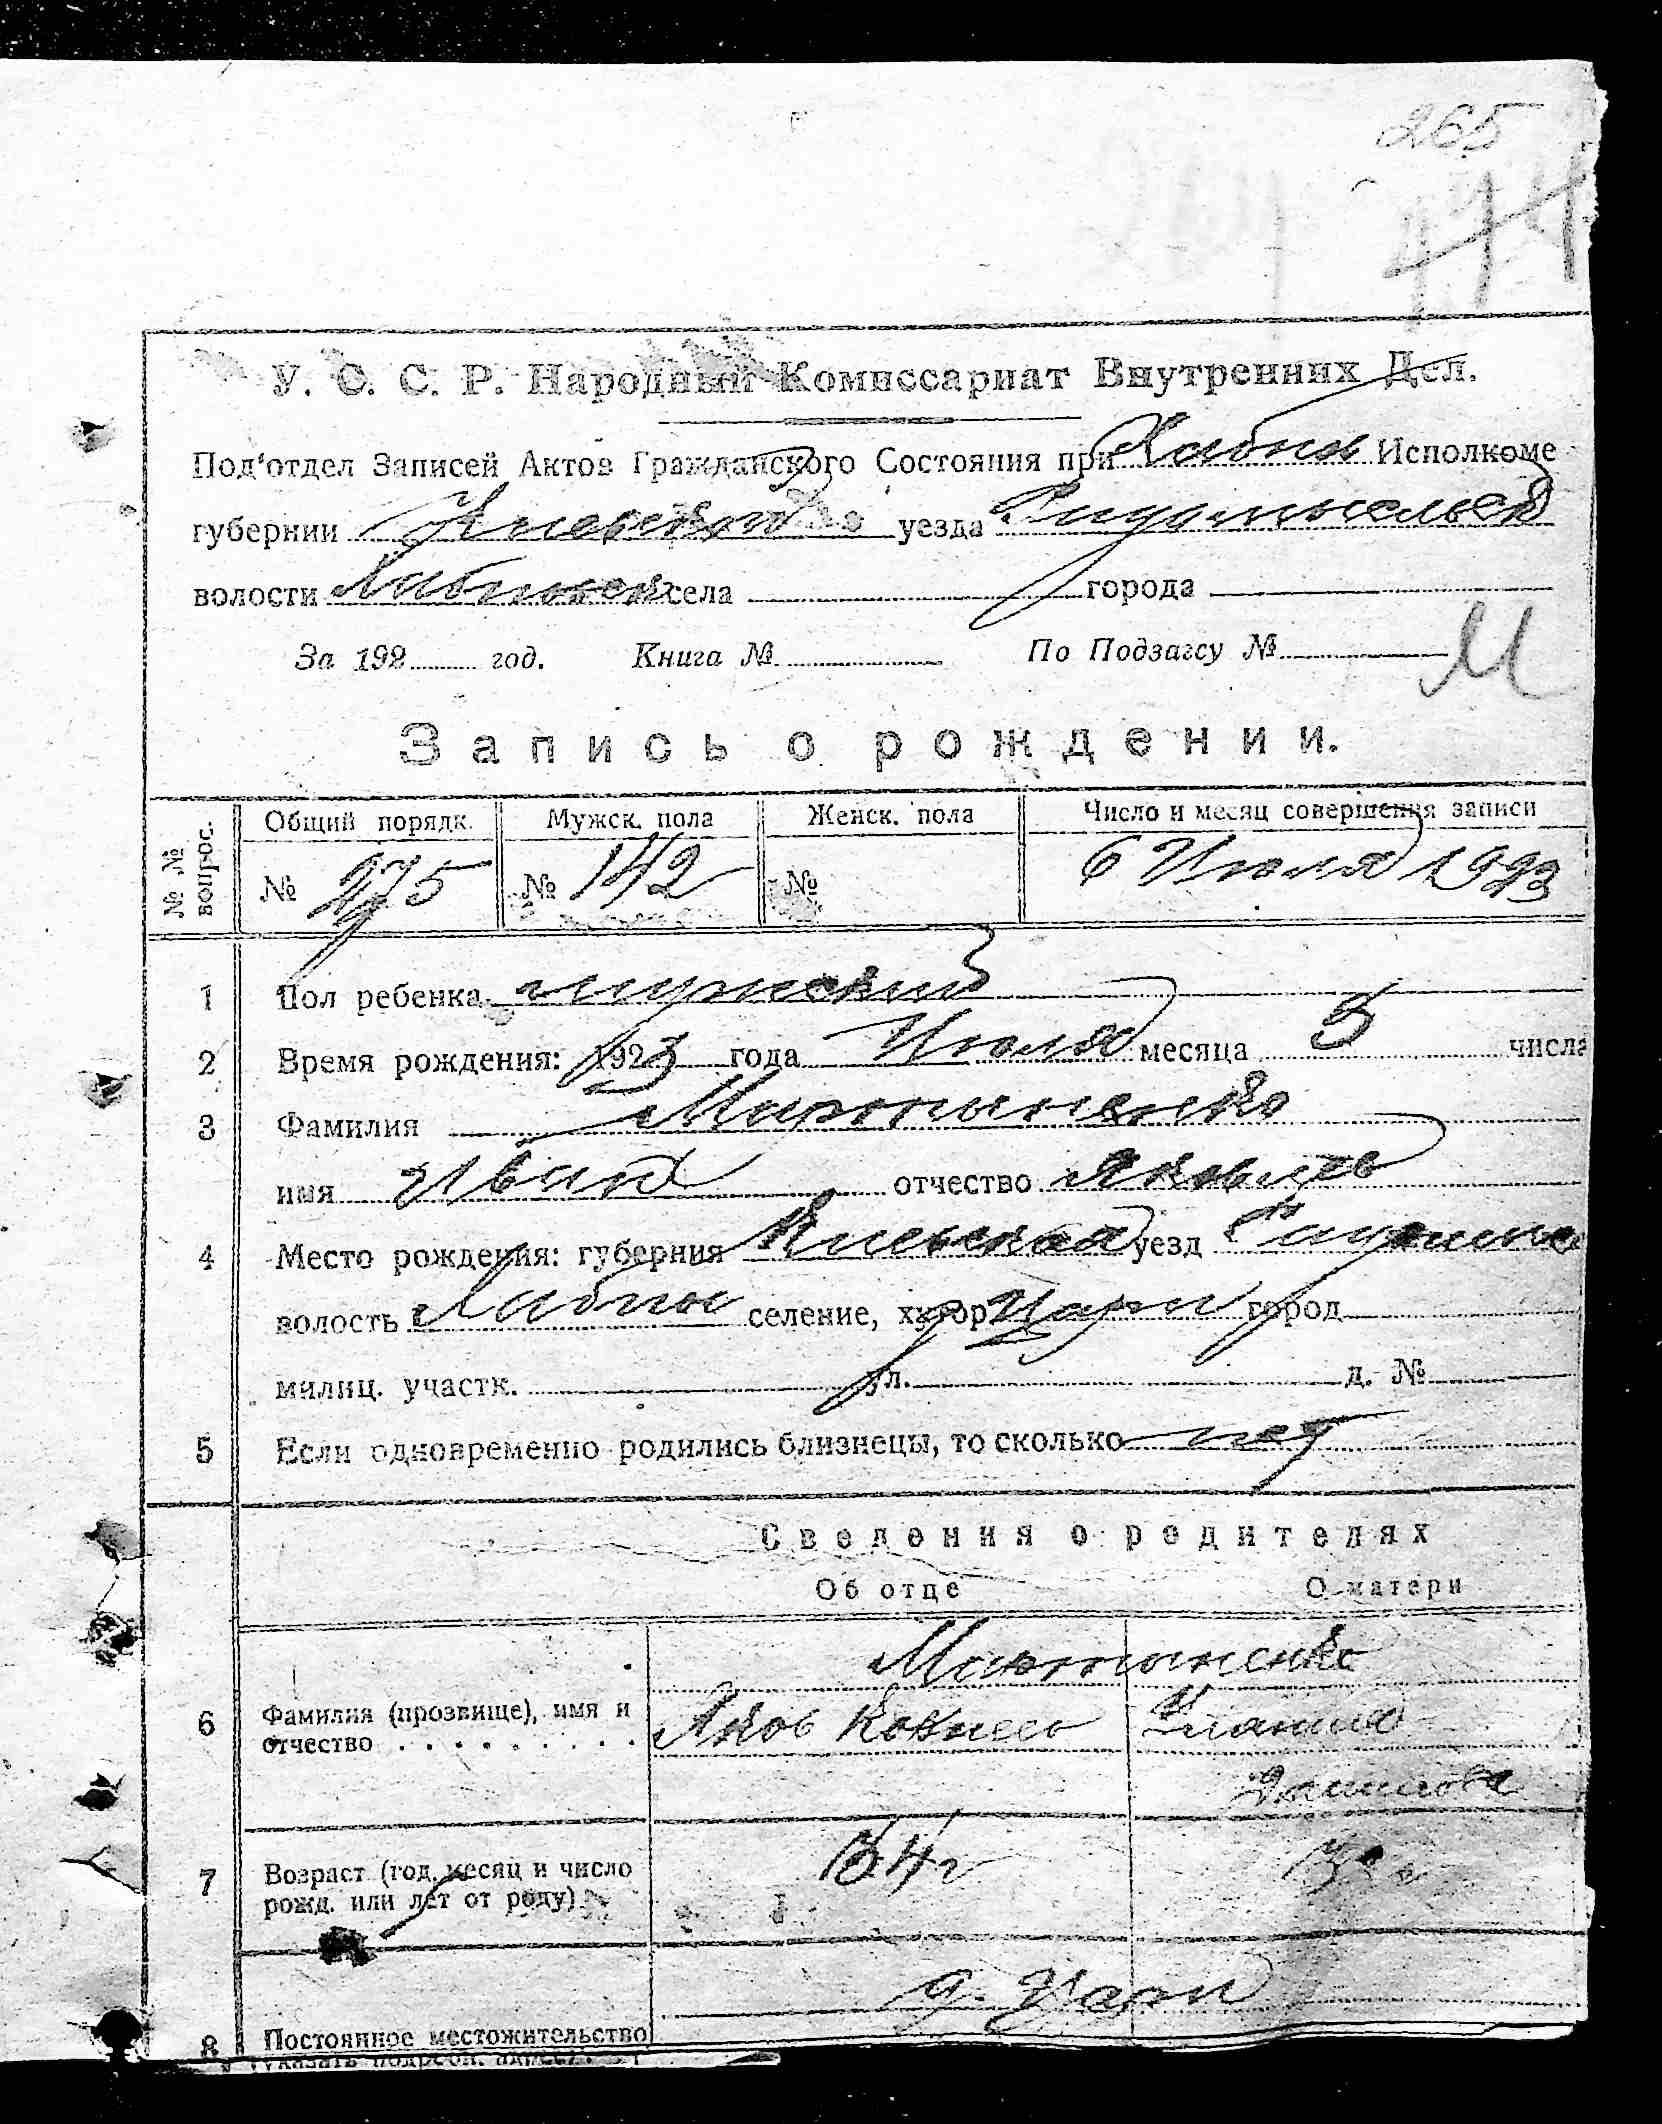 265
У. С. С. Р. Народный Комиссариат Внутренних Дел.
Под'отдел Записей Актов Гражданского Состояния при Хабна Исполкоме
губернии Киевской уезда
волости села города
За 192 год. Книга № По Подзагсу №
М
Запись о рождении.
№ № вопрос. Общий порядк. Мужск. пола Женск. пола Число и месяц совершения записи
№ 275 № 142 № 6 Июля 1923
1 Пол ребенка мужский
2 Время рождения: 1923 года Июля месяца 5 числа
3 Фамилия Мартыненко
имя Иван отчество Яковлев
4 Место рождения: губерния Киевская уезд
волость Хабны селение, хутор город
милиц. участк. ул. д. №
5 Если одновременно родились близнецы, то сколько нет
Сведения о родителях
Об отце О матери
Мартыненко
6 Фамилия (прозвище), имя и Яков
отчество
7 Возраст (год, месяц и число 34 г
рожд. или лет от роду)
8 Постоянное местожительство
(указать подробн. адрес).